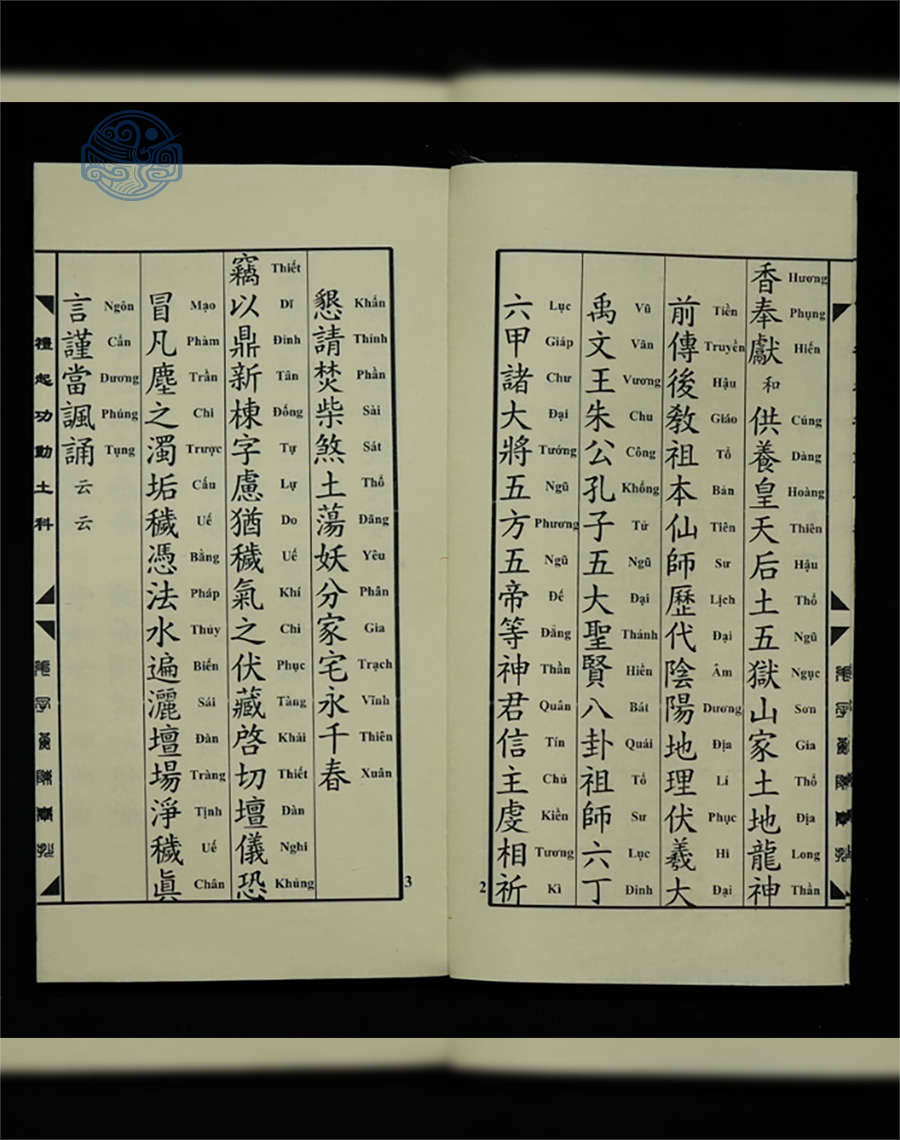 香奉獻和供養皇天后土五獄山家土地龍神
Hương Phụng Hiến Cúng Dàng Hoàng Thiên Hậu Thổ Ngũ Ngục Sơn Gia Thổ Địa Long Thần
前傳後教祖本仙師歷代陰陽地理伏羲大
Tiền Truyền Hậu Giáo Tổ Bản Tiên Sư Lịch Đại Âm Dương Địa Lí Phục Hi Đại
禹文王朱公孔子五大聖賢八卦祖師六丁
Vũ Văn Vương Chu Công Khổng Tử Ngũ Đại Thánh Hiền Bát Quái Tổ Sư Lục Đinh
六甲諸大將五方五帝等神君信主虔相祈
Lục Giáp Chư Đại Tướng Ngũ Phương Ngũ Đế Đẳng Thần Quân Tín Chủ Kiền Tương Kì
2
3
懇請焚柴煞土蕩妖分家宅永千春
Khẩn Thỉnh Phần Sài Sát Thổ Đãng Yêu Phân Gia Trạch Vĩnh Thiên Xuân
竊以鼎新棟字慮猶穢氣之伏藏啓切壇儀恐
Thiết Dĩ Đỉnh Tân Đống Tự Lự Do Uế Khí Chi Phục Tàng Khải Thiết Đàn Nghi Khủng
冒凡塵之濁垢穢憑法水遍灑壇場淨穢眞
Mạo Phàm Trần Chi Trược Cấu Uế Bằng Pháp Thủy Biến Sái Đàn Tràng Tịnh Uế Chân
言謹當諷誦云云
Ngôn Cẩn Đương Phúng Tụng
禮起功動土科